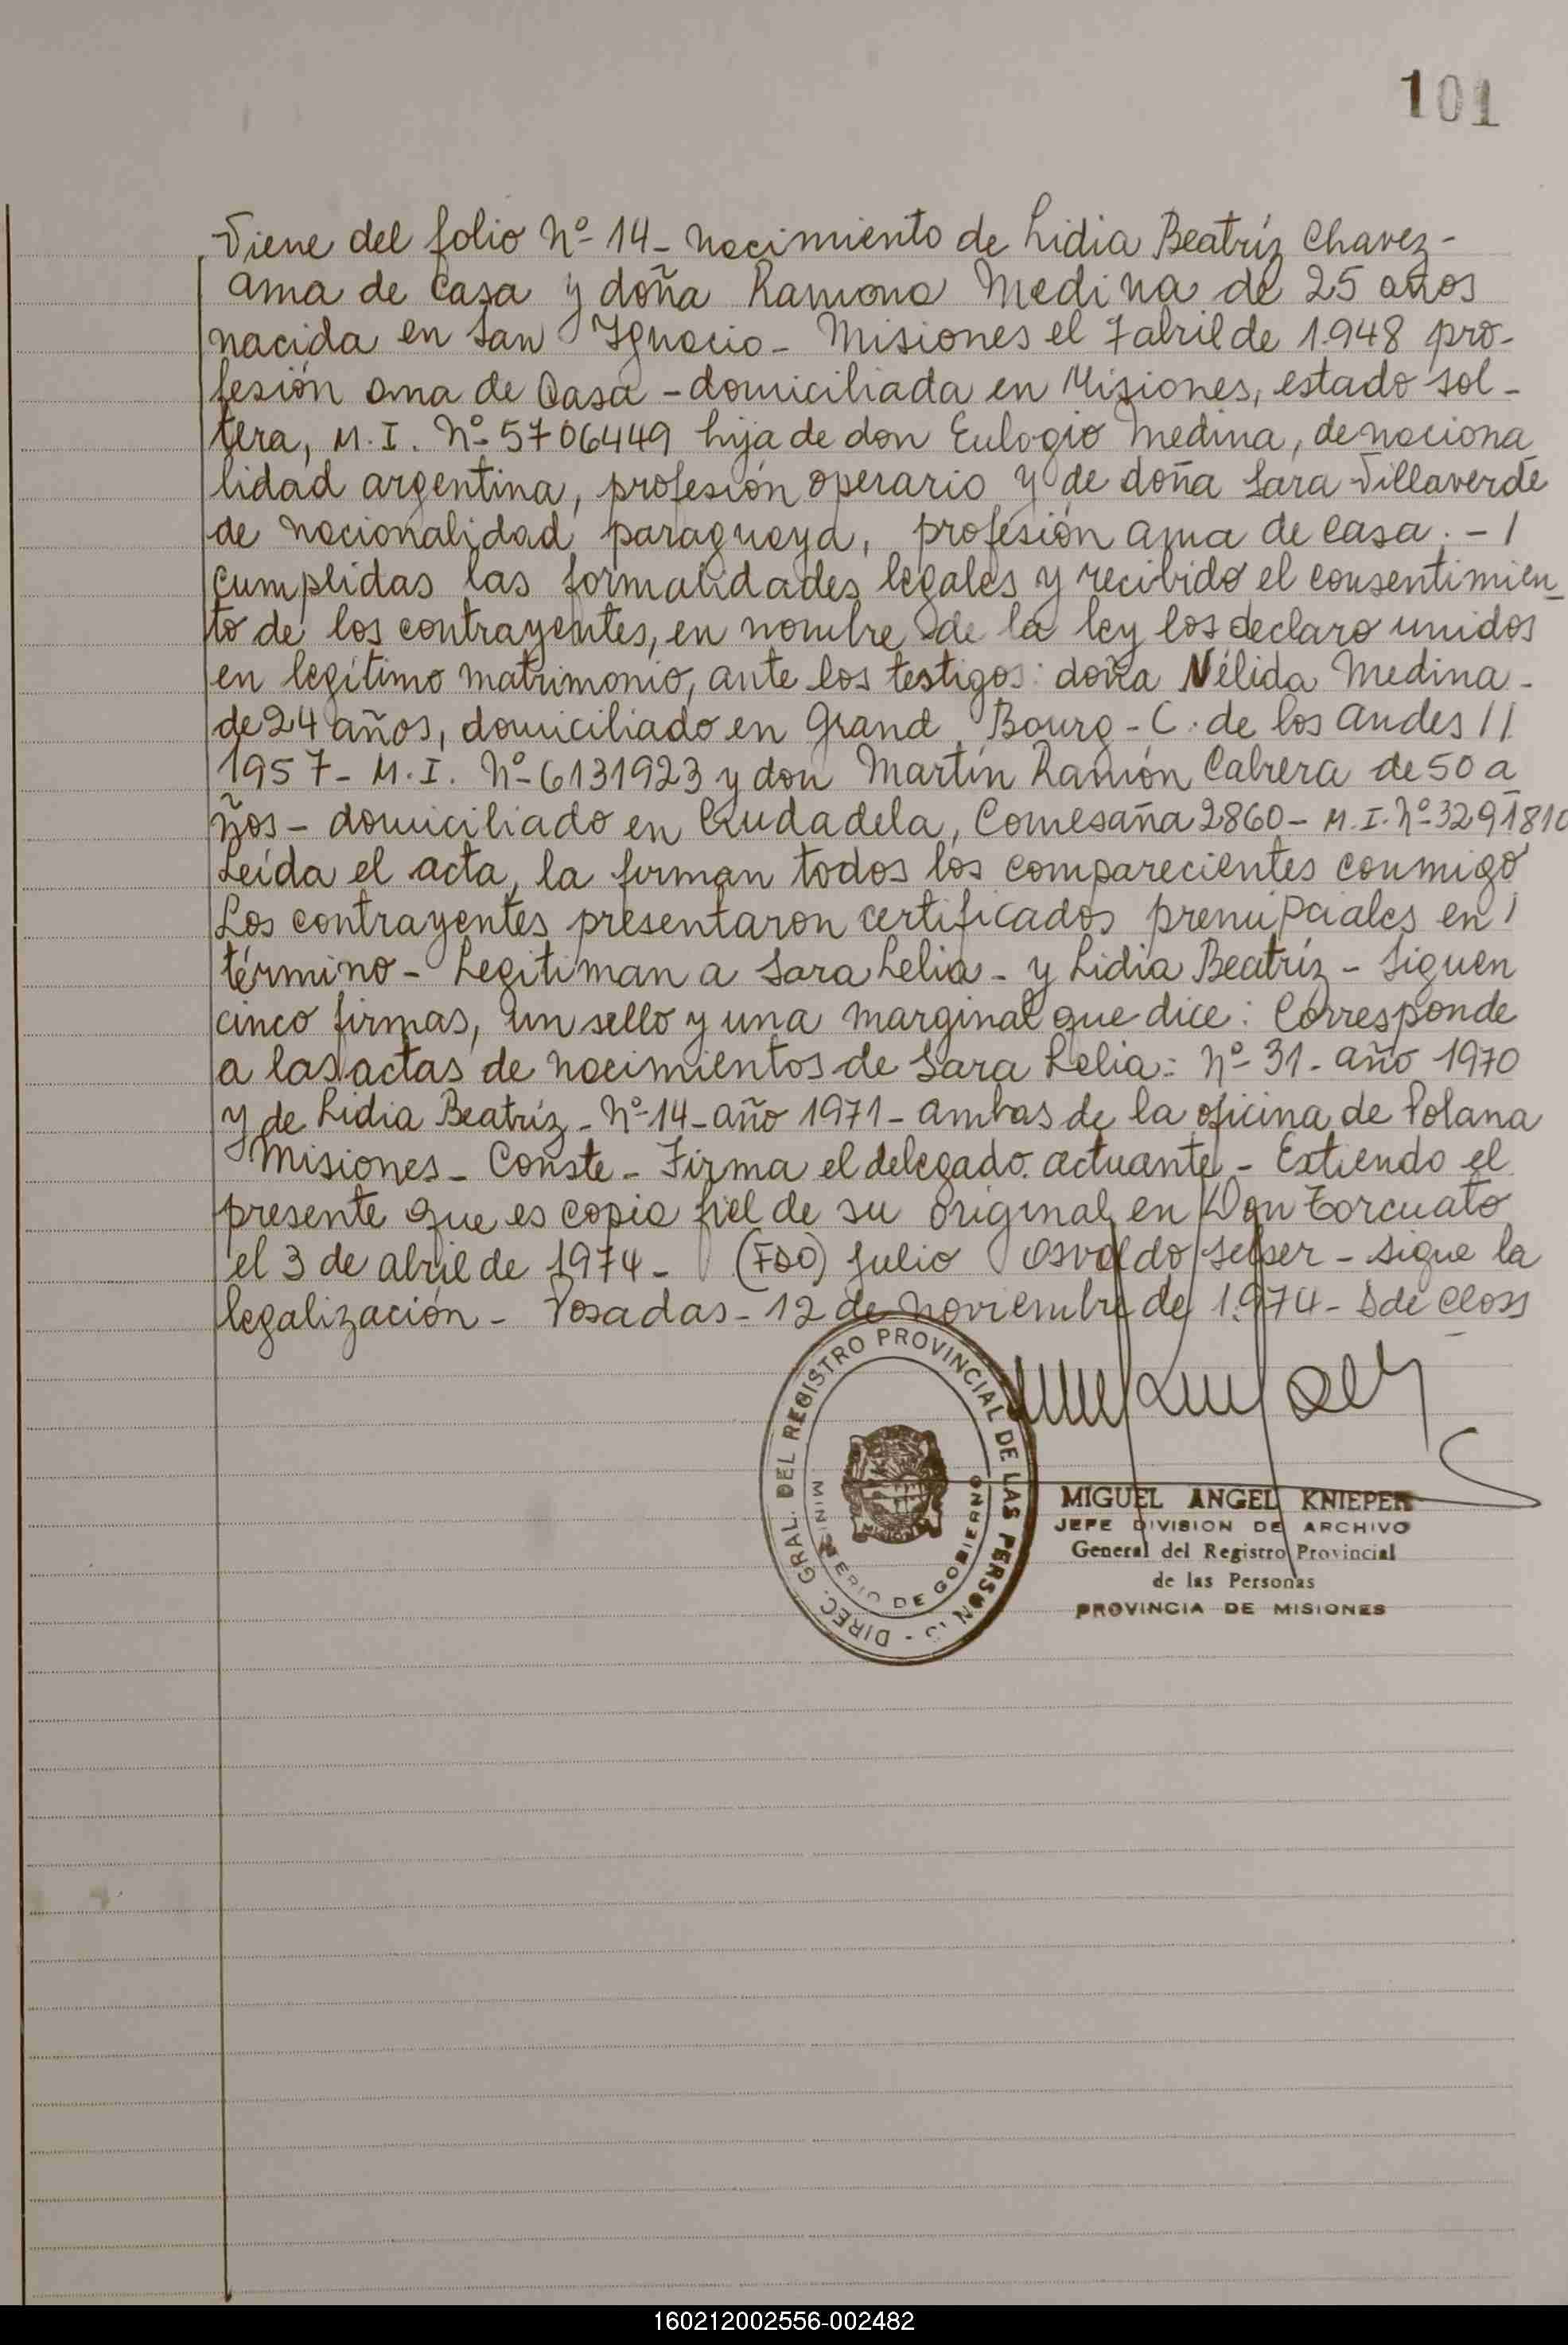 101
Viene del folio Nº 14 - Nacimiento de Lidia Beatríz Chavez -
ama de casa y doña Ramona Medina de 25 años
nacida en San Ignacio - Misiones el 7 abril de 1.948 pro-
fesión ama de casa - domiciliada en Misiones, estado sol-
tera, M.I. Nº 5706449 hija de don Eulogio Medina, de naciona
lidad argentina, profesión operario y de doña Sara Villaverde
de nacionalidad paraguaya, profesión ama de casa. - /
cumplidas las formalidades legales y recibido el consentimien_
to de los contrayentes, en nombre de la ley los declaro unidos
en legítimo matrimonio, ante los testigos: doña Nélida Medina -
de 24 años, domiciliado en Grand Bourg - C. de los Andes //
1957 - M.I. Nº 6131923 y don Martín Ramón Cabrera de 50 a
ños - domiciliado en Ciudadela, Comesaña 2860 - M.I. Nº 3291810
Leída el acta, la firman todos los comparecientes conmigo
Los contrayentes presentaron certificados prenupciales en /
término - Legitiman a Sara Lelia - y Lidia Beatríz - Siguen
cinco firmas, un sello y una marginal que dice: Corresponde
a las actas de nacimientos de Sara Lelia: Nº 31 - año 1970
y de Lidia Beatríz - Nº 14 - año 1971 - ambas de la oficina de Polana
Misiones - Conste - Firma el delegado actuante - Extiendo el
presente que es copia fiel de su original en Don Torcuato
el 3 de abril de 1974 - (FDO) Julio Osvaldo - Sigue la
legalización - Posadas - 12 de noviembre de 1.974 - S de Closs
DIREC. GRAL. DEL REGISTRO PROVINCIAL DE LAS PERSONAS -
MINISTERIO DE GOBIERNO
MIGUEL ANGEL KNIEPER
JEFE DIVISION DE ARCHIVO
General del Registro Provincial
de las Personas
PROVINCIA DE MISIONES
160212002556-002482